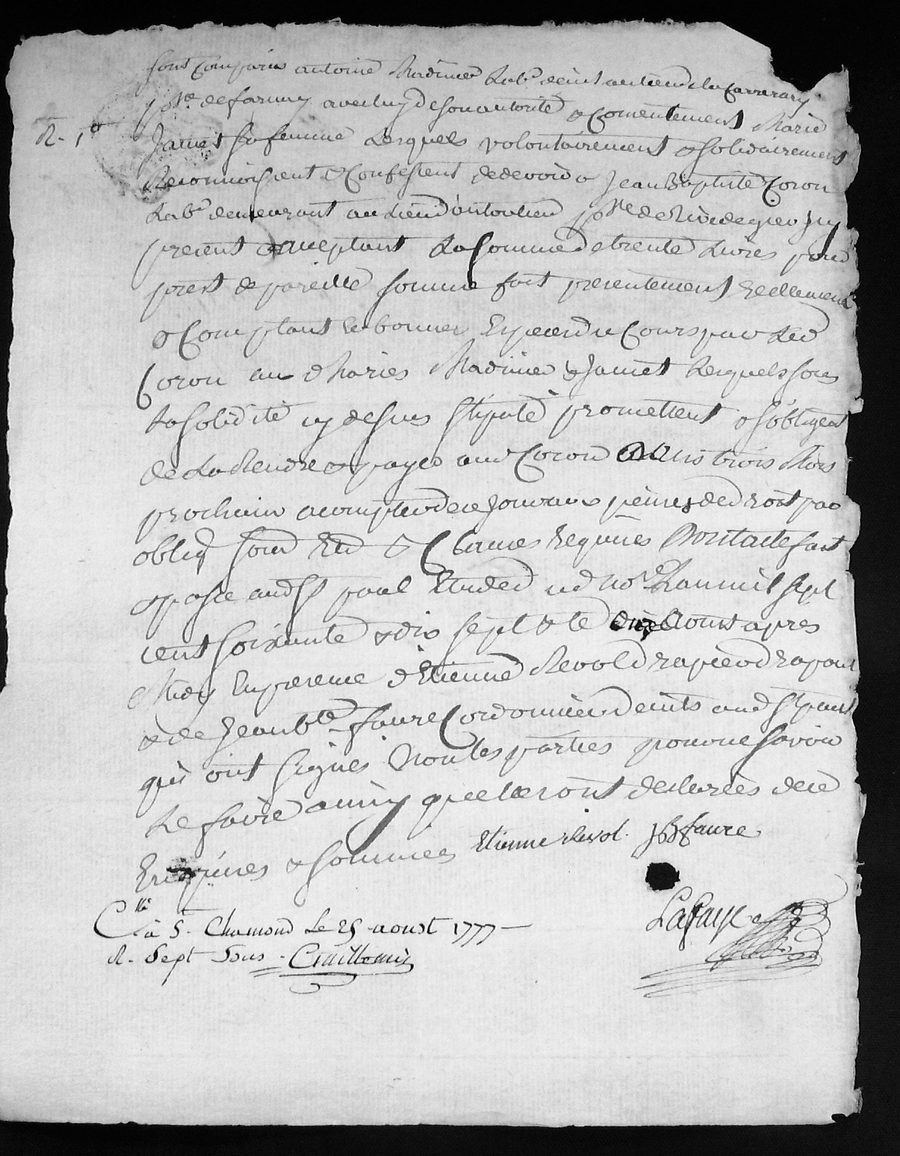 sont Comparus antoine Madinier Lab.r deint au lieu de la Carrerary
p.sse de farnay avec luy de son autorité & Consentement Marie
R. 1er
Jamet sa femme Lesquels volontairement & solidairement
Reconnoissent & Confessent de devoir a Jean Baptiste Coron
Lab.r demeurant au Lieu p.sse de Rivedegier Jcy
present acceptant La Somme de trente Livres pour
prest de pareille somme fait presentement reellement
& Comptant en bonnes Especes du Cours par Led
Coron aux d Maries Madinier & Jamet Lesquels sous
La solidité cy dessus stipulé promettent & s'obligent
de La Rendre & payer aud Coron dans trois Mois
prochain a compter de ce Jour aux peines de droit par
oblig soum Ren & Clauses Requises Dont acte fait
& passé aud St paul Etude du nore L'an mil sept
cent soixante & dix sept & le aoust apres
Midy En presence d'Etienne Revol drapier drapant
& de Jean bte faure Cordonnier deints aud St paul
qui ont signés Non les parties pour ne savoir
Le faire ainsy quelles ont declarées de ce
Enquises & sommées Etienne Revol. JB faure
C.llé à St. Chamond Le 25 aoust 1777
R. Sept Sous
LaFaye